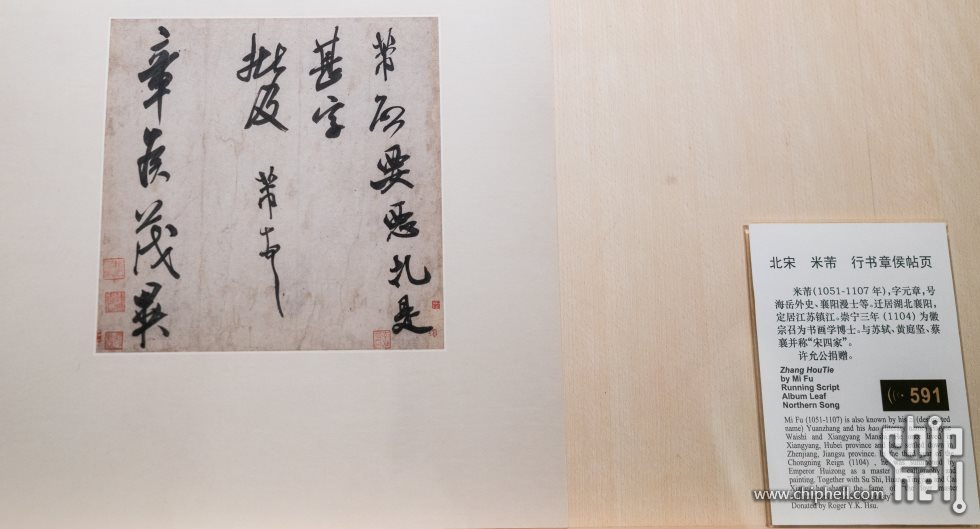 芾所要惡札是
甚字
批及 芾頓首
章侯茂異
北宋 米芾 行书章侯帖页
米芾(1051-1107 年),字元章,号
海岳外史、襄阳漫士等。迁居湖北襄阳,
定居江苏镇江。崇宁三年 (1104) 为徽
宗召为书画学博士。与苏轼、黄庭坚、蔡
襄并称“宋四家”。
许允公捐赠。
Zhang HouTie
by Mi Fu
Running Script
Album Leaf
Northern Song
591
Mi Fu (1051-1107) is also known by his
name) Yuanzhang and his hao
Waishi and Xiangyang
Xiangyang, Hubei province and
Zhenjiang, Jiangsu province.
Chongning Reign (1104) , he was
Emperor Huizong as a master
painting. Together with Su Shi,
the fame of
Donated by Roger Y.K. Hsu.
www.chiphell.com
chip
hell